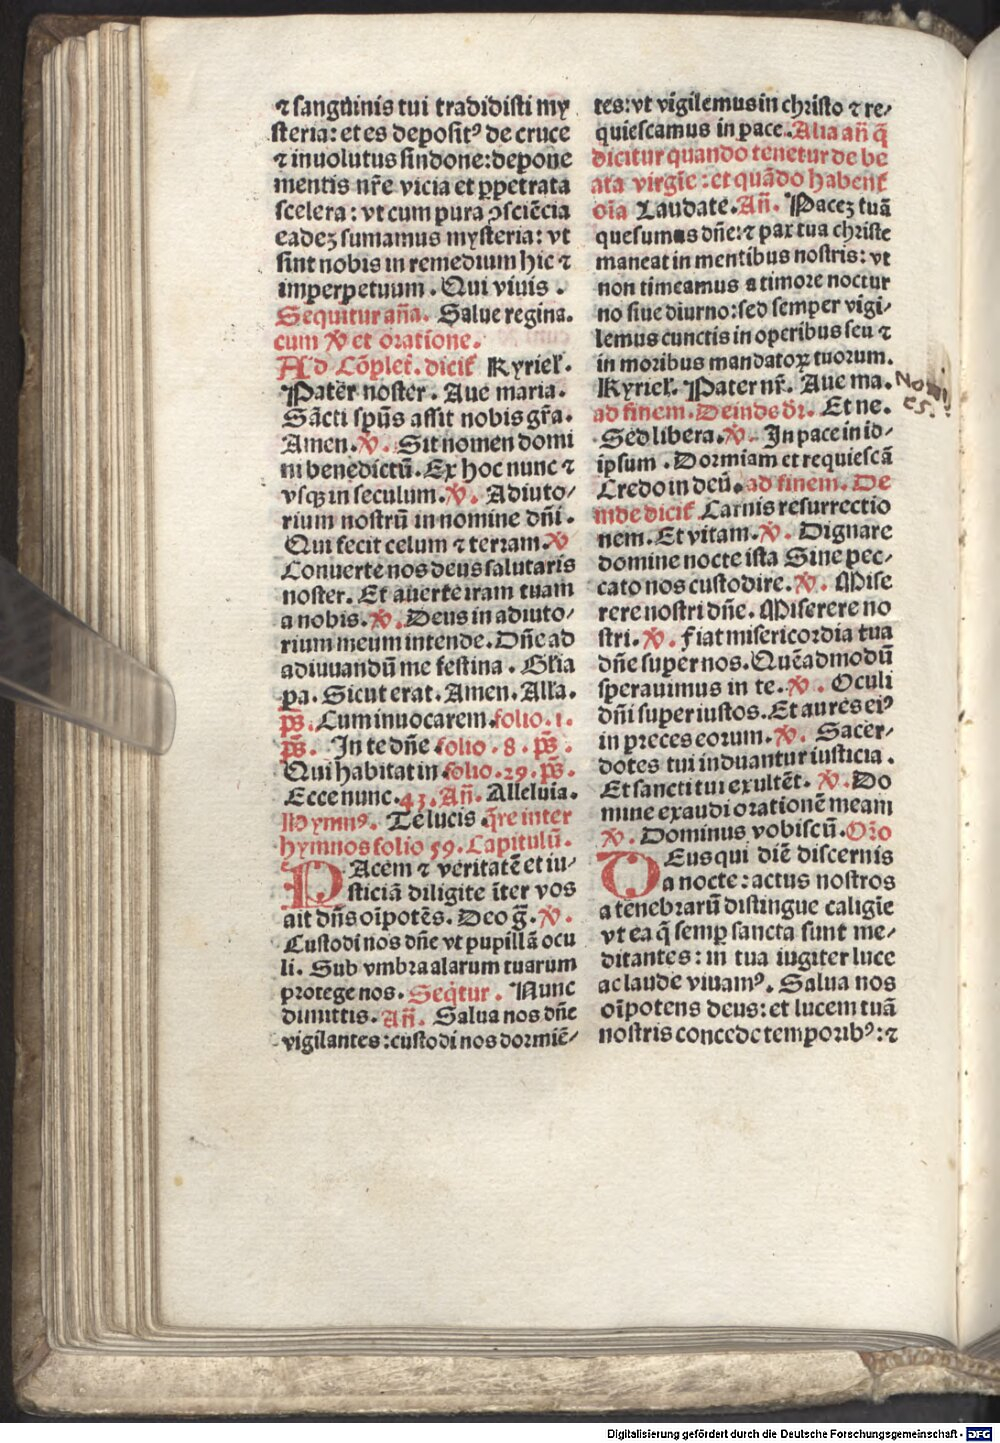 ⁊ sanguinis tui tradidisti my
steria: et es deposit⁹ de cruce
⁊ inuolutus sindone: depone
mentis nr̄e vicia et ꝑpetrata
scelera: vt cum pura ɔsciēcia
eadeꝫ sumamus mysteria: vt
sint nobis in remedium hic ⁊
imperpetuum. Qui viuis.
Sequitur añā. Salue regina.
cum ℣ et oratione.
Ad Cōplet̄. dicit̄ Kyriel̄.
Pater noster. Aue maria.
Sācti spūs assit nobis gr̄a.
Amen. ℣. Sit nomen domi
ni benedictū. Ex hoc nunc ⁊
vsqꝫ in seculum. ℣. Adiuto⸗
rium nostrū in nomine dñi.
Qui fecit celum ⁊ terram. ℣
Conuerte nos deus salutaris
noster. Et auerte iram tuam
a nobis. ℣. Deus in adiuto⸗
rium meum intende. Dñe ad
adiuuandū me festina. Gl̄ia
pa. Sicut erat. Amen. Alla.
ps̄. Cum inuocarem. folio. 1.
ps̄. In te dñe folio. 8. ps̄.
Qui habitat in. folio. 29. ps̄.
Ecce nunc. 43. Añ. Alleluia.
Hymn⁹. Te lucis. q̄re inter
hymnos folio 59. Capitulū.
PAcem ⁊ veritatē et iu⸗
sticiā diligite īter vos
ait dñs oīpotēs. Deo ḡ. ℣.
Custodi nos dñe vt pupillā ocu
li. Sub vmbra alarum tuarum
protege nos. Seq̄tur. Nunc
dimittis. Añ. Salua nos dñe
vigilantes: custodi nos dormiē⸗
tes: vt vigilemus in christo ⁊ re⸗
quiescamus in pace. Alia añ q̄
dicitur quando tenetur de be
ata virgīe: et quādo habent̄
oīa Laudate. Añ. Paceꝫ tuā
quesumus dñe: ⁊ pax tua christe
maneat in mentibus nostris: vt
non timeamus a timore noctur
no siue diurno: sed semper vigi⸗
lemus cunctis in operibus seu ⁊
in moribus mandatoꝝ tuorum.
Kyriel̄. Pater nr̄. Aue ma.
ad finem. Deinde dr̄. Et ne.
Sed libera. ℣. In pace in id⸗
ipsum. Dormiam et requiescā
Credo in deū. ad finem. De
inde dicit̄ Carnis resurrectio
nem. Et vitam. ℣. Dignare
domine nocte ista Sine pec⸗
cato nos custodire. ℣. Mise
rere nostri dñe. Miserere no
stri. ℣. Fiat misericordia tua
dñe super nos. Quēadmodū
sperauimus in te. ℣. Oculi
dñi super iustos. Et aures ei⁹
in preces eorum. ℣. Sacer⸗
dotes tui induantur iusticia.
Et sancti tui exultēt. ℣. Do
mine exaudi orationē meam
℣. Dominus vobiscū. Oīo
DEus qui diē discernis
a nocte: actus nostros
a tenebrarū distingue caligīe
vt ea q̄ semꝑ sancta sunt me⸗
ditantes: in tua iugiter luce
ac laude viuam⁹. Salua nos
oīpotens deus: et lucem tuā
nostris concede temporib⁹: ⁊
Digitalisierung gefördert durch die Deutsche Forschungsgemeinschaft - DFG